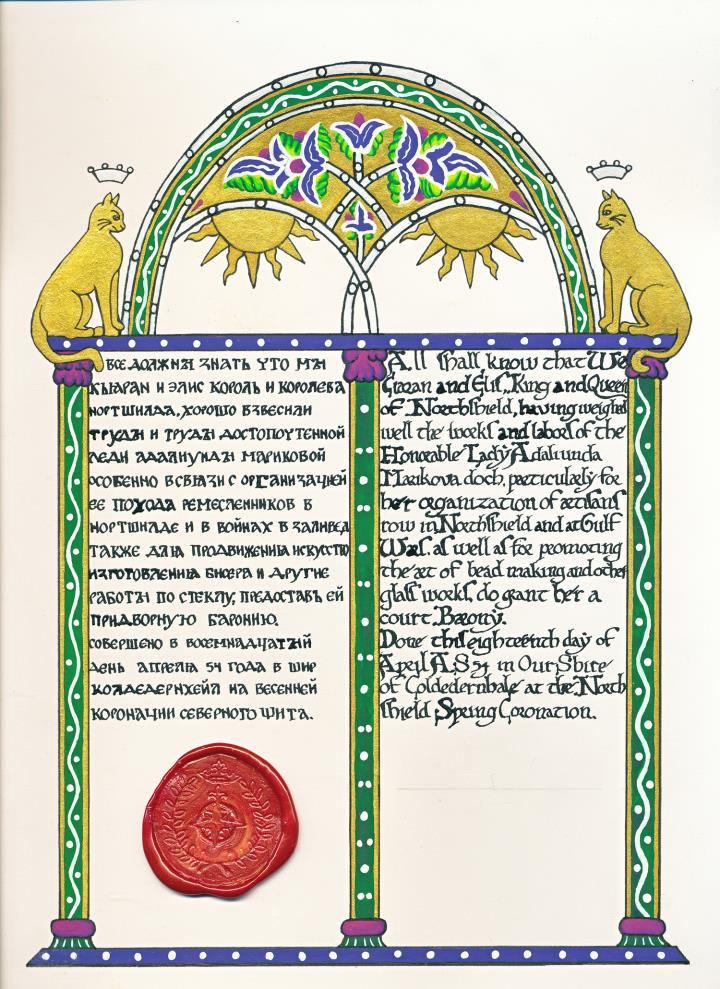 все должны знать что мы
кьяран и элис король и королева
нортшилда, хорошо взвесили
труды и труды достопочтенной
леди адалиунды мариковой
особенно в связи с организацией
ее похода ремесленников в
нортшилде и в войнах в заливед
также для продвижения искусство
изготовления бисера и другие
работы по стеклу, предоставь ей
придворную баронию.
совершено в восемнадчатый
день апреля 54 года в шир
колдедернхейл на весенней
коронации северного щита.
All shall know that We
Cieran and Elis, King and Queen
of Northshield, having weighed
well the works and labors of the
Honorable Lady Adaliunda
Marikova doch, particularly for
her organization of artisans
row in Northshield and at Gulf
Wars. as well as for promoting
the art of bead making and other
glass works, do grant her a
court Barony.
Done this eighteenth day of
April A.S 54 in Our Shire
of Coldedernhale at the North
shield Spring Coronation.